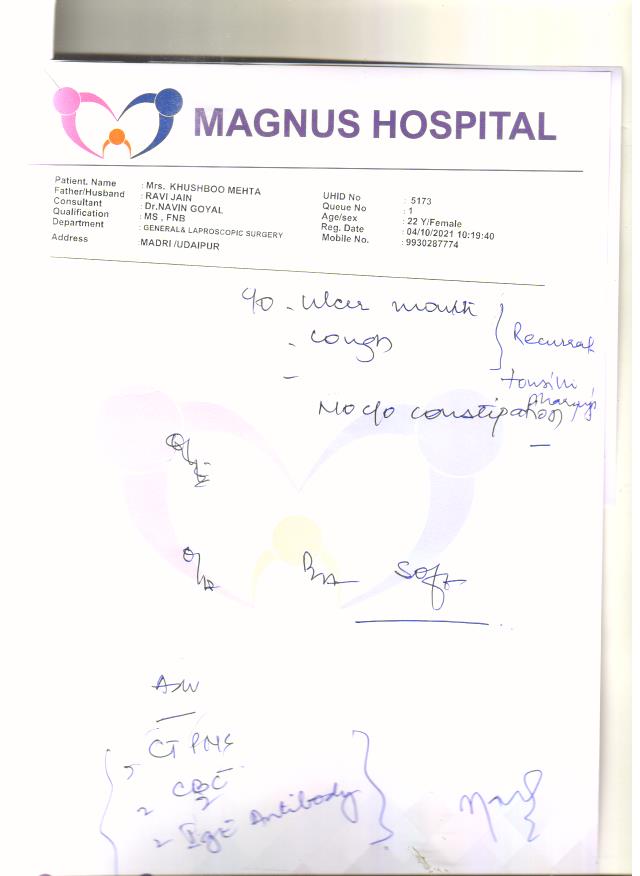 MAGNUS HOSPITAL
Patient. Name : Mrs. KHUSHBOO MEHTA
Father/Husband : RAVI JAIN
Consultant : Dr.NAVIN GOYAL
Qualification : MS , FNB
Department : GENERAL& LAPROSCOPIC SURGERY
Address : MADRI /UDAIPUR
UHID No : 5173
Queue No : 1
Age/sex : 22 Y/Female
Reg. Date : 04/10/2021 10:19:40
Mobile No. : 9930287774
c/o - Ulcer mouth
- cough
Recurrent
-
No c/o constipation
O/E
P/A Soft
Adv
CT PNS
CBC
IgE Antibody